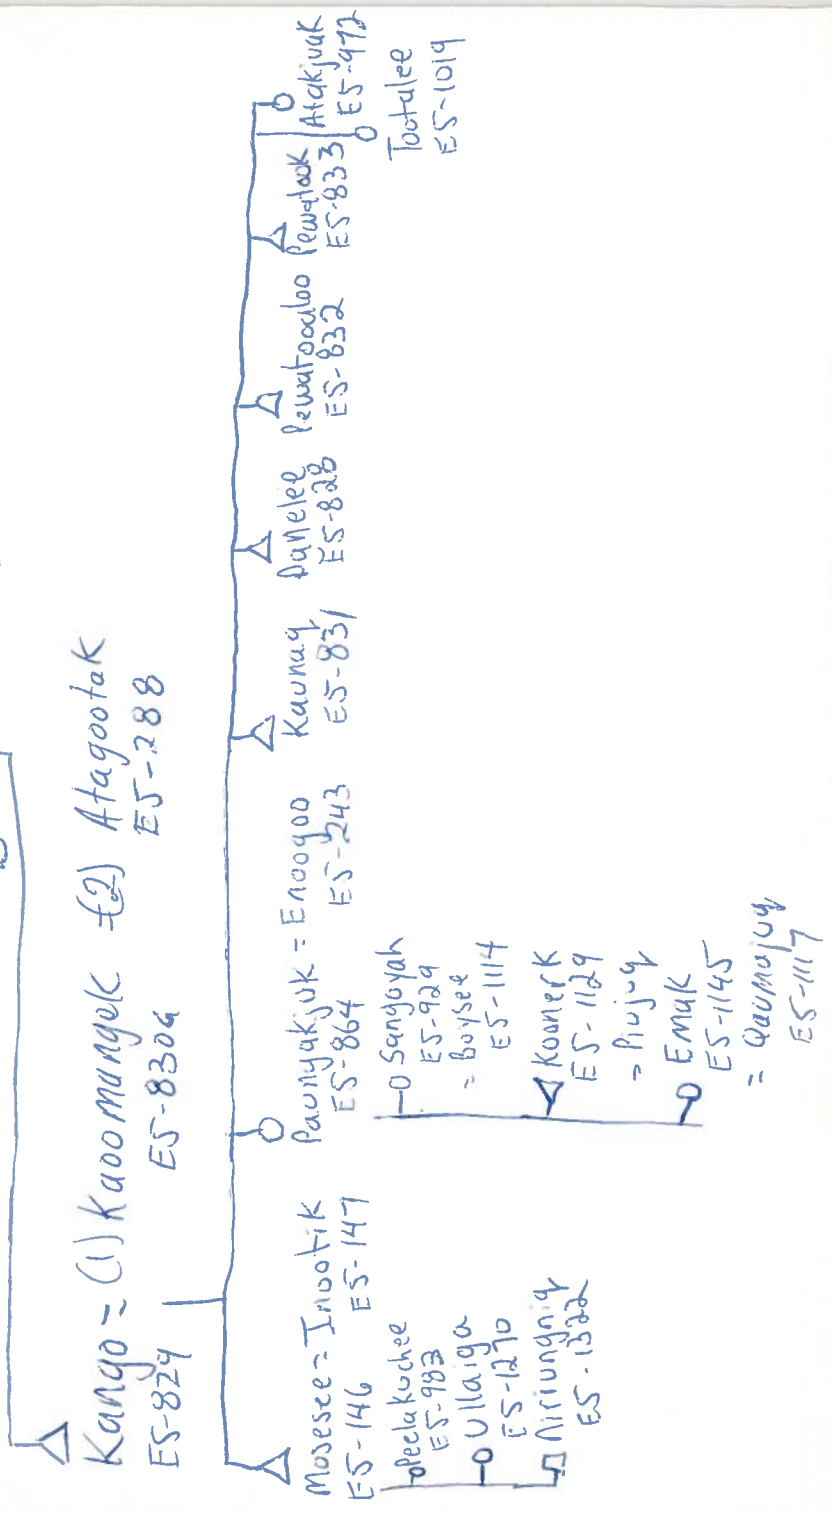 Kango = (1) Kaoomangok =(2) Atagootak
E5-829 E5-830a E5-288
Mosesee = Inootik
E5-146 E5-147
Peelakuchee
E5-983
Ullaiga
E5-1270
Niriungniq
E5-1322
Paunyakjuk = Enoogoo
E5-864 E5-243
Sangoyah
E5-929
= Boysee
E5-1114
Koonerk
E5-1129
= Piujuq
Emak
E5-1145
= Qaumajuq
E5-1117
Kaunaq
E5-831
Danelee
E5-828
Pewatooaloo
E5-832
Pewatook
E5-833
Atakjuak
E5-972
Tootalee
E5-1019